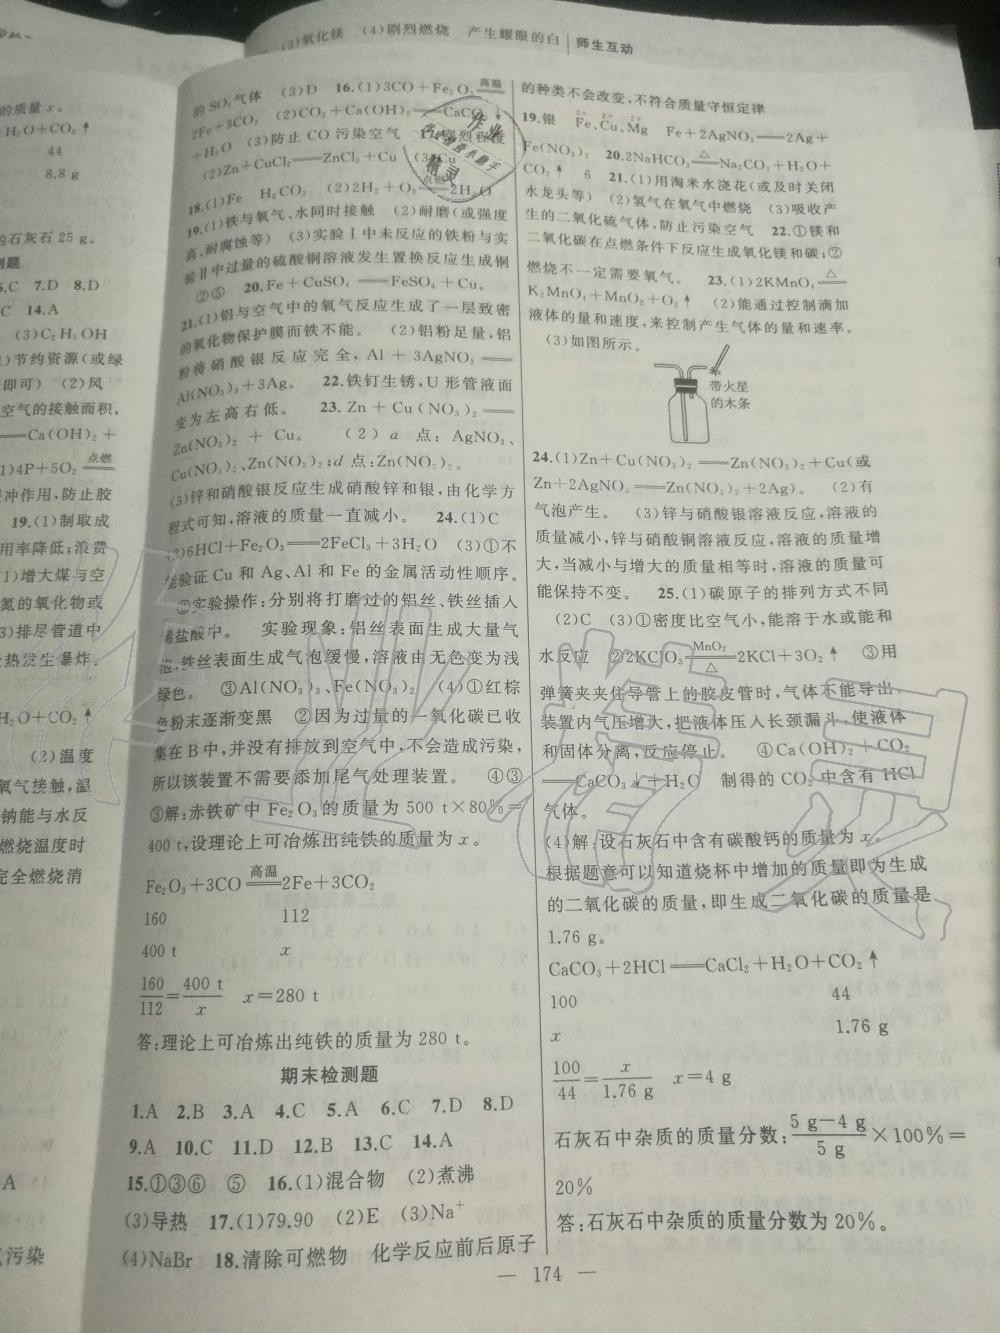 (3)氧化镁 (4)剧烈燃烧 产生耀眼的白
师生互动
的质量x。
+H₂O+CO₂↑
44
8.8 g
的石灰石25 g。
测题
6.C 7.D 8.D
C 14.A
(3)C₂H₅OH
)节约资源(或绿
即可) (2)风
空气的接触面积,
══Ca(OH)₂+
1)4P+5O₂ 点燃══
缓冲作用,防止胶
19.(1)制取成
用率降低;浪费
1)增大煤与空
氮的氧化物或
3)排尽管道中
热发生爆炸。
H₂O+CO₂↑
(2)温度
氧气接触,温
钠能与水反
燃烧温度时
完全燃烧消
A
污染
的SO₂气体 (3)D 16.(1)3CO+Fe₂O₃ 高温══
2Fe+3CO₂ (2)CO₂+Ca(OH)₂══CaCO₃↓
+H₂O (3)防止CO污染空气 17.
(2)Zn+CuCl₂══ZnCl₂+Cu (3)Cu
18.(1)Fe H₂CO₃ (2)2H₂+O₂ 点燃══2H₂O
19.(1)铁与氧气、水同时接触 (2)耐磨(或强度
高、耐腐蚀等) (3)实验Ⅰ中未反应的铁粉与实
验Ⅱ中过量的硫酸铜溶液发生置换反应生成铜
②⑤ 20.Fe+CuSO₄══FeSO₄+Cu。
21.(1)铝与空气中的氧气反应生成了一层致密
的氧化物保护膜而铁不能。 (2)铝粉足量,铝
粉将硝酸银反应完全,Al+3AgNO₃══
Al(NO₃)₃+3Ag。 22.铁钉生锈,U形管液面
变为左高右低。 23.Zn+Cu(NO₃)₂══
Zn(NO₃)₂+Cu。 (2)a点:AgNO₃、
Cu(NO₃)₂、Zn(NO₃)₂;d点:Zn(NO₃)₂。
(3)锌和硝酸银反应生成硝酸锌和银,由化学方
程式可知,溶液的质量一直减小。 24.(1)C
(2)6HCl+Fe₂O₃══2FeCl₃+3H₂O (3)①不
能验证Cu和Ag、Al和Fe的金属活动性顺序。
②实验操作:分别将打磨过的铝丝、铁丝插入
稀盐酸中。 实验现象:铝丝表面生成大量气
泡,铁丝表面生成气泡缓慢,溶液由无色变为浅
绿色。 ③Al(NO₃)₃、Fe(NO₃)₂ (4)①红棕
色粉末逐渐变黑 ②因为过量的一氧化碳已收
集在B中,并没有排放到空气中,不会造成污染,
所以该装置不需要添加尾气处理装置。 ④③
③解:赤铁矿中Fe₂O₃的质量为500 t×80%=
400 t,设理论上可冶炼出纯铁的质量为x。
Fe₂O₃+3CO 高温══2Fe+3CO₂
160 112
400 t x
160/112=400 t/x x=280 t
答:理论上可冶炼出纯铁的质量为280 t。
期末检测题
1.A 2.B 3.A 4.C 5.A 6.C 7.D 8.D
9.A 10.C 11.D 12.B 13.C 14.A
15.①③⑥ ⑤ 16.(1)混合物 (2)煮沸
(3)导热 17.(1)79.90 (2)E (3)Na⁺
(4)NaBr 18.清除可燃物 化学反应前后原子
的种类不会改变,不符合质量守恒定律
19.银 Fe、Cu、Mg Fe+2AgNO₃══2Ag+
Fe(NO₃)₂ 20.2NaHCO₃ △══Na₂CO₃+H₂O+
CO₂↑ 6 21.(1)用淘米水浇花(或及时关闭
水龙头等) (2)氢气在氧气中燃烧 (3)吸收产
生的二氧化硫气体,防止污染空气 22.①镁和
二氧化碳在点燃条件下反应生成氧化镁和碳;②
燃烧不一定需要氧气。 23.(1)2KMnO₄ △══
K₂MnO₄+MnO₂+O₂↑ (2)能通过控制滴加
液体的量和速度,来控制产生气体的量和速率。
(3)如图所示。
带火星
的木条
24.(1)Zn+Cu(NO₃)₂══Zn(NO₃)₂+Cu(或
Zn+2AgNO₃══Zn(NO₃)₂+2Ag)。 (2)有
气泡产生。 (3)锌与硝酸银溶液反应,溶液的
质量减小,锌与硝酸铜溶液反应,溶液的质量增
大,当减小与增大的质量相等时,溶液的质量可
能保持不变。 25.(1)碳原子的排列方式不同
(2)C (3)①密度比空气小,能溶于水或能和
水反应 ②2KClO₃ MnO₂══△ 2KCl+3O₂↑ ③用
弹簧夹夹住导管上的胶皮管时,气体不能导出,
装置内气压增大,把液体压入长颈漏斗,使液体
和固体分离,反应停止。 ④Ca(OH)₂+CO₂
══CaCO₃↓+H₂O 制得的CO₂中含有HCl
气体。
(4)解:设石灰石中含有碳酸钙的质量为x。
根据题意可以知道烧杯中增加的质量即为生成
的二氧化碳的质量,即生成二氧化碳的质量是
1.76 g。
CaCO₃+2HCl══CaCl₂+H₂O+CO₂↑
100 44
x 1.76 g
100/44=x/1.76 g x=4 g
石灰石中杂质的质量分数:(5 g-4 g)/5 g×100%=
20%
答:石灰石中杂质的质量分数为20%。
— 174 —